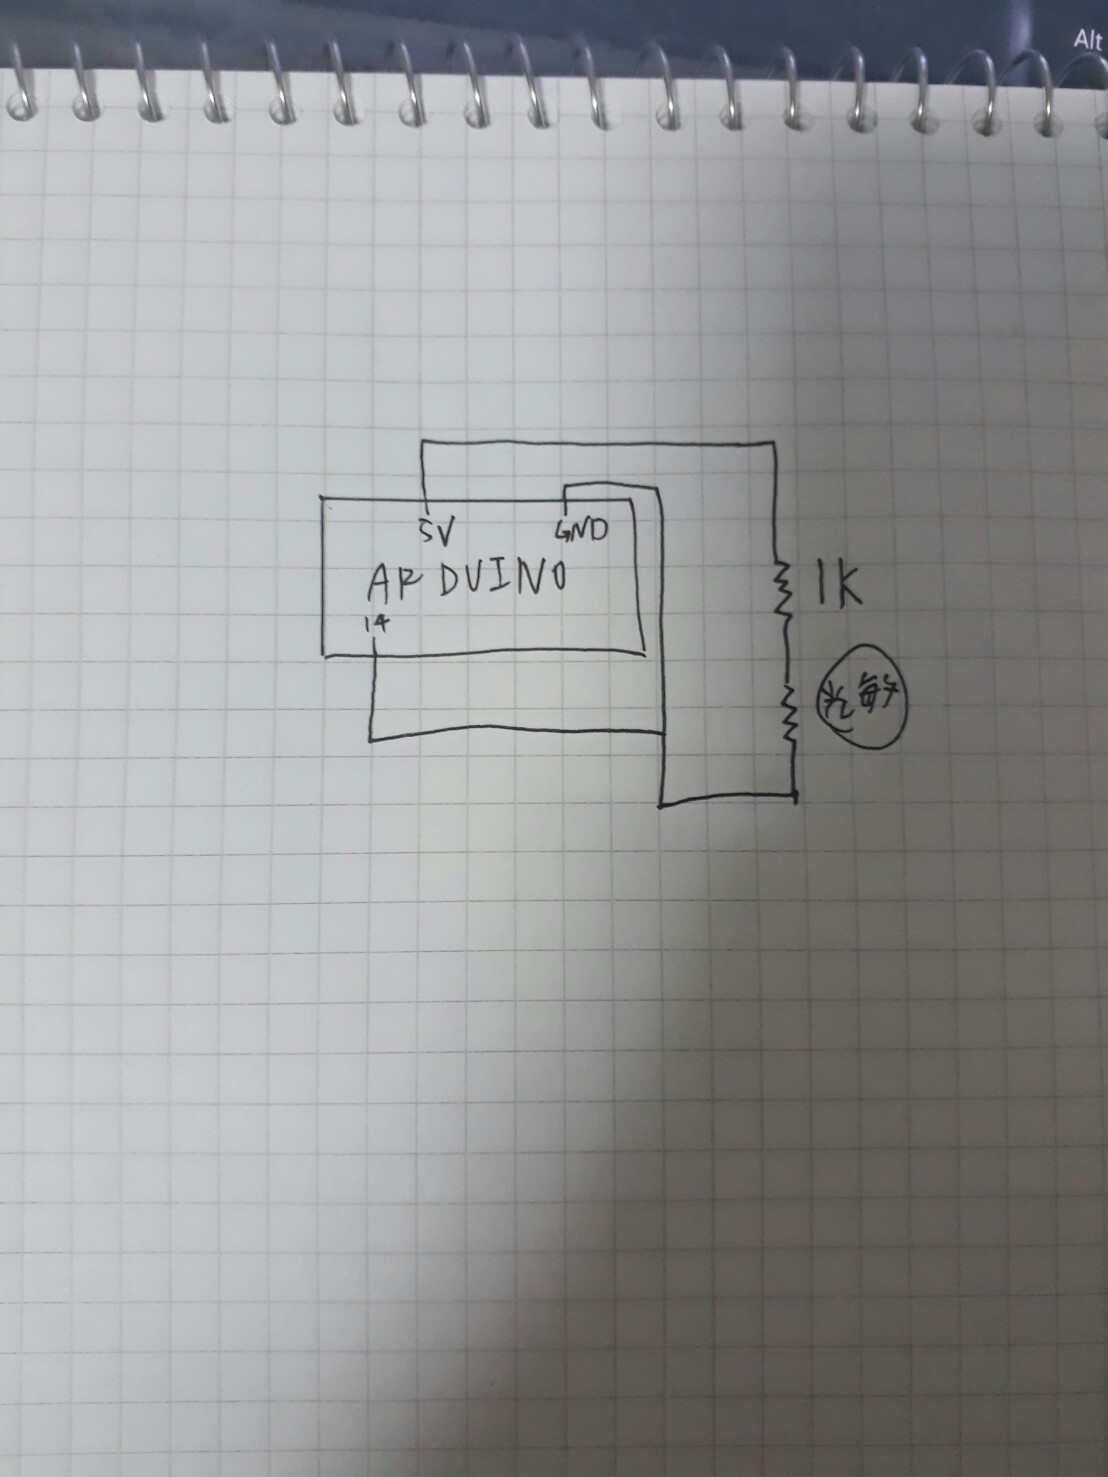 Alt
5V
GND
ARDUINO
14
1K
光敏